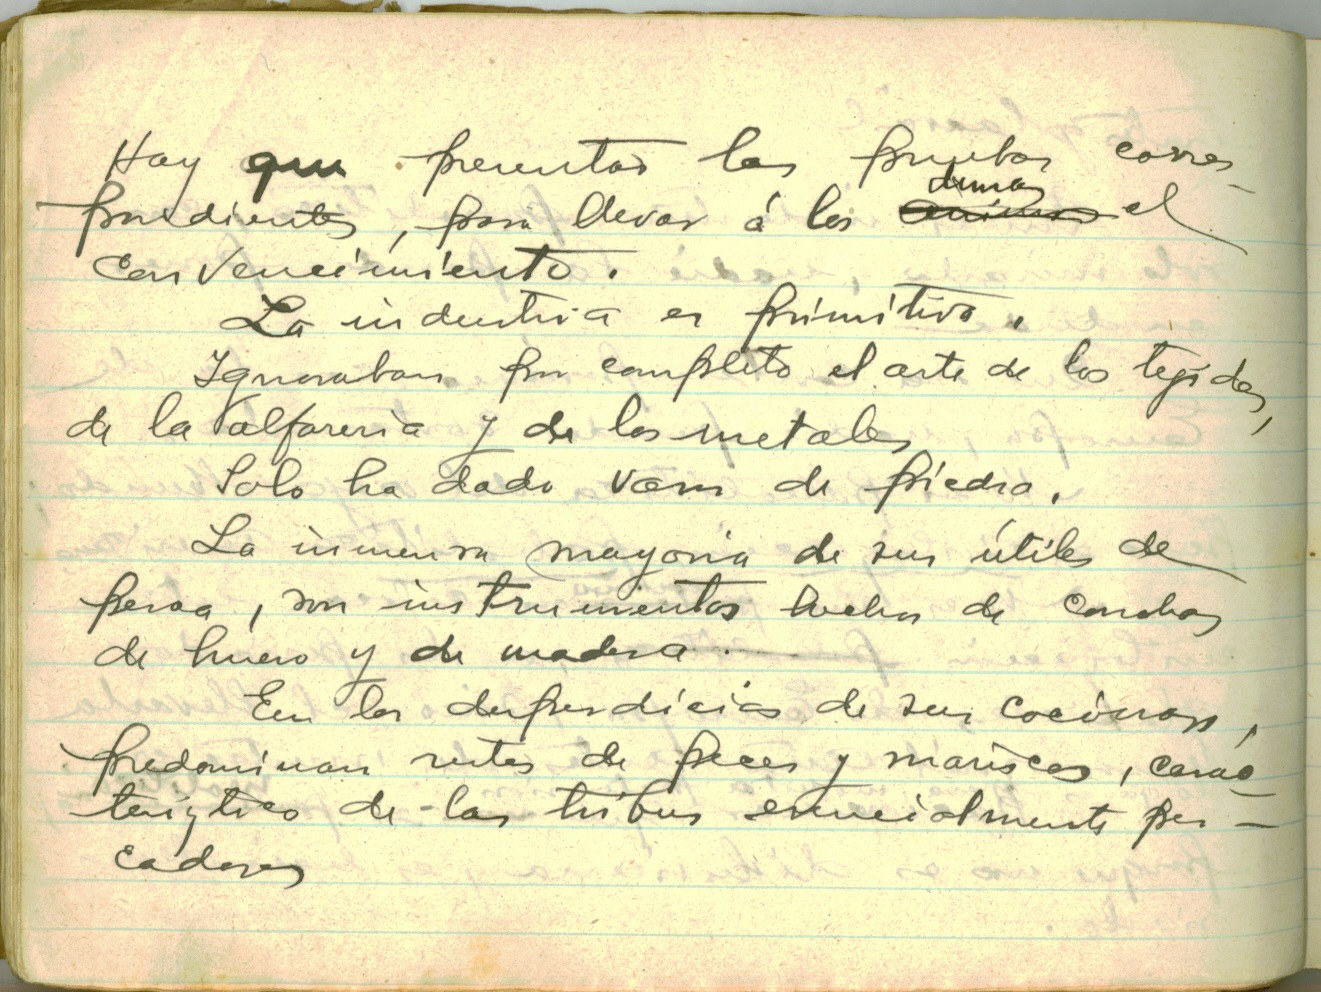 Hay que presentar las pruebas corres-
pondientes, para llevar á los demas el
convencimiento.
La industria es primitiva.
Ignoraban por completo el arte de los tejidos,
de la alfareria y de los metales
Solo ha dado vasos de piedra.
La inmensa mayoria de sus útiles de
pesca, son instrumentos hechos de conchas
de hueso y de madera.
En los desperdicios de sus cocinas,
predominan restos de peces y mariscos, carac-
terigtico de las tribus esencialmente pes-
cadores